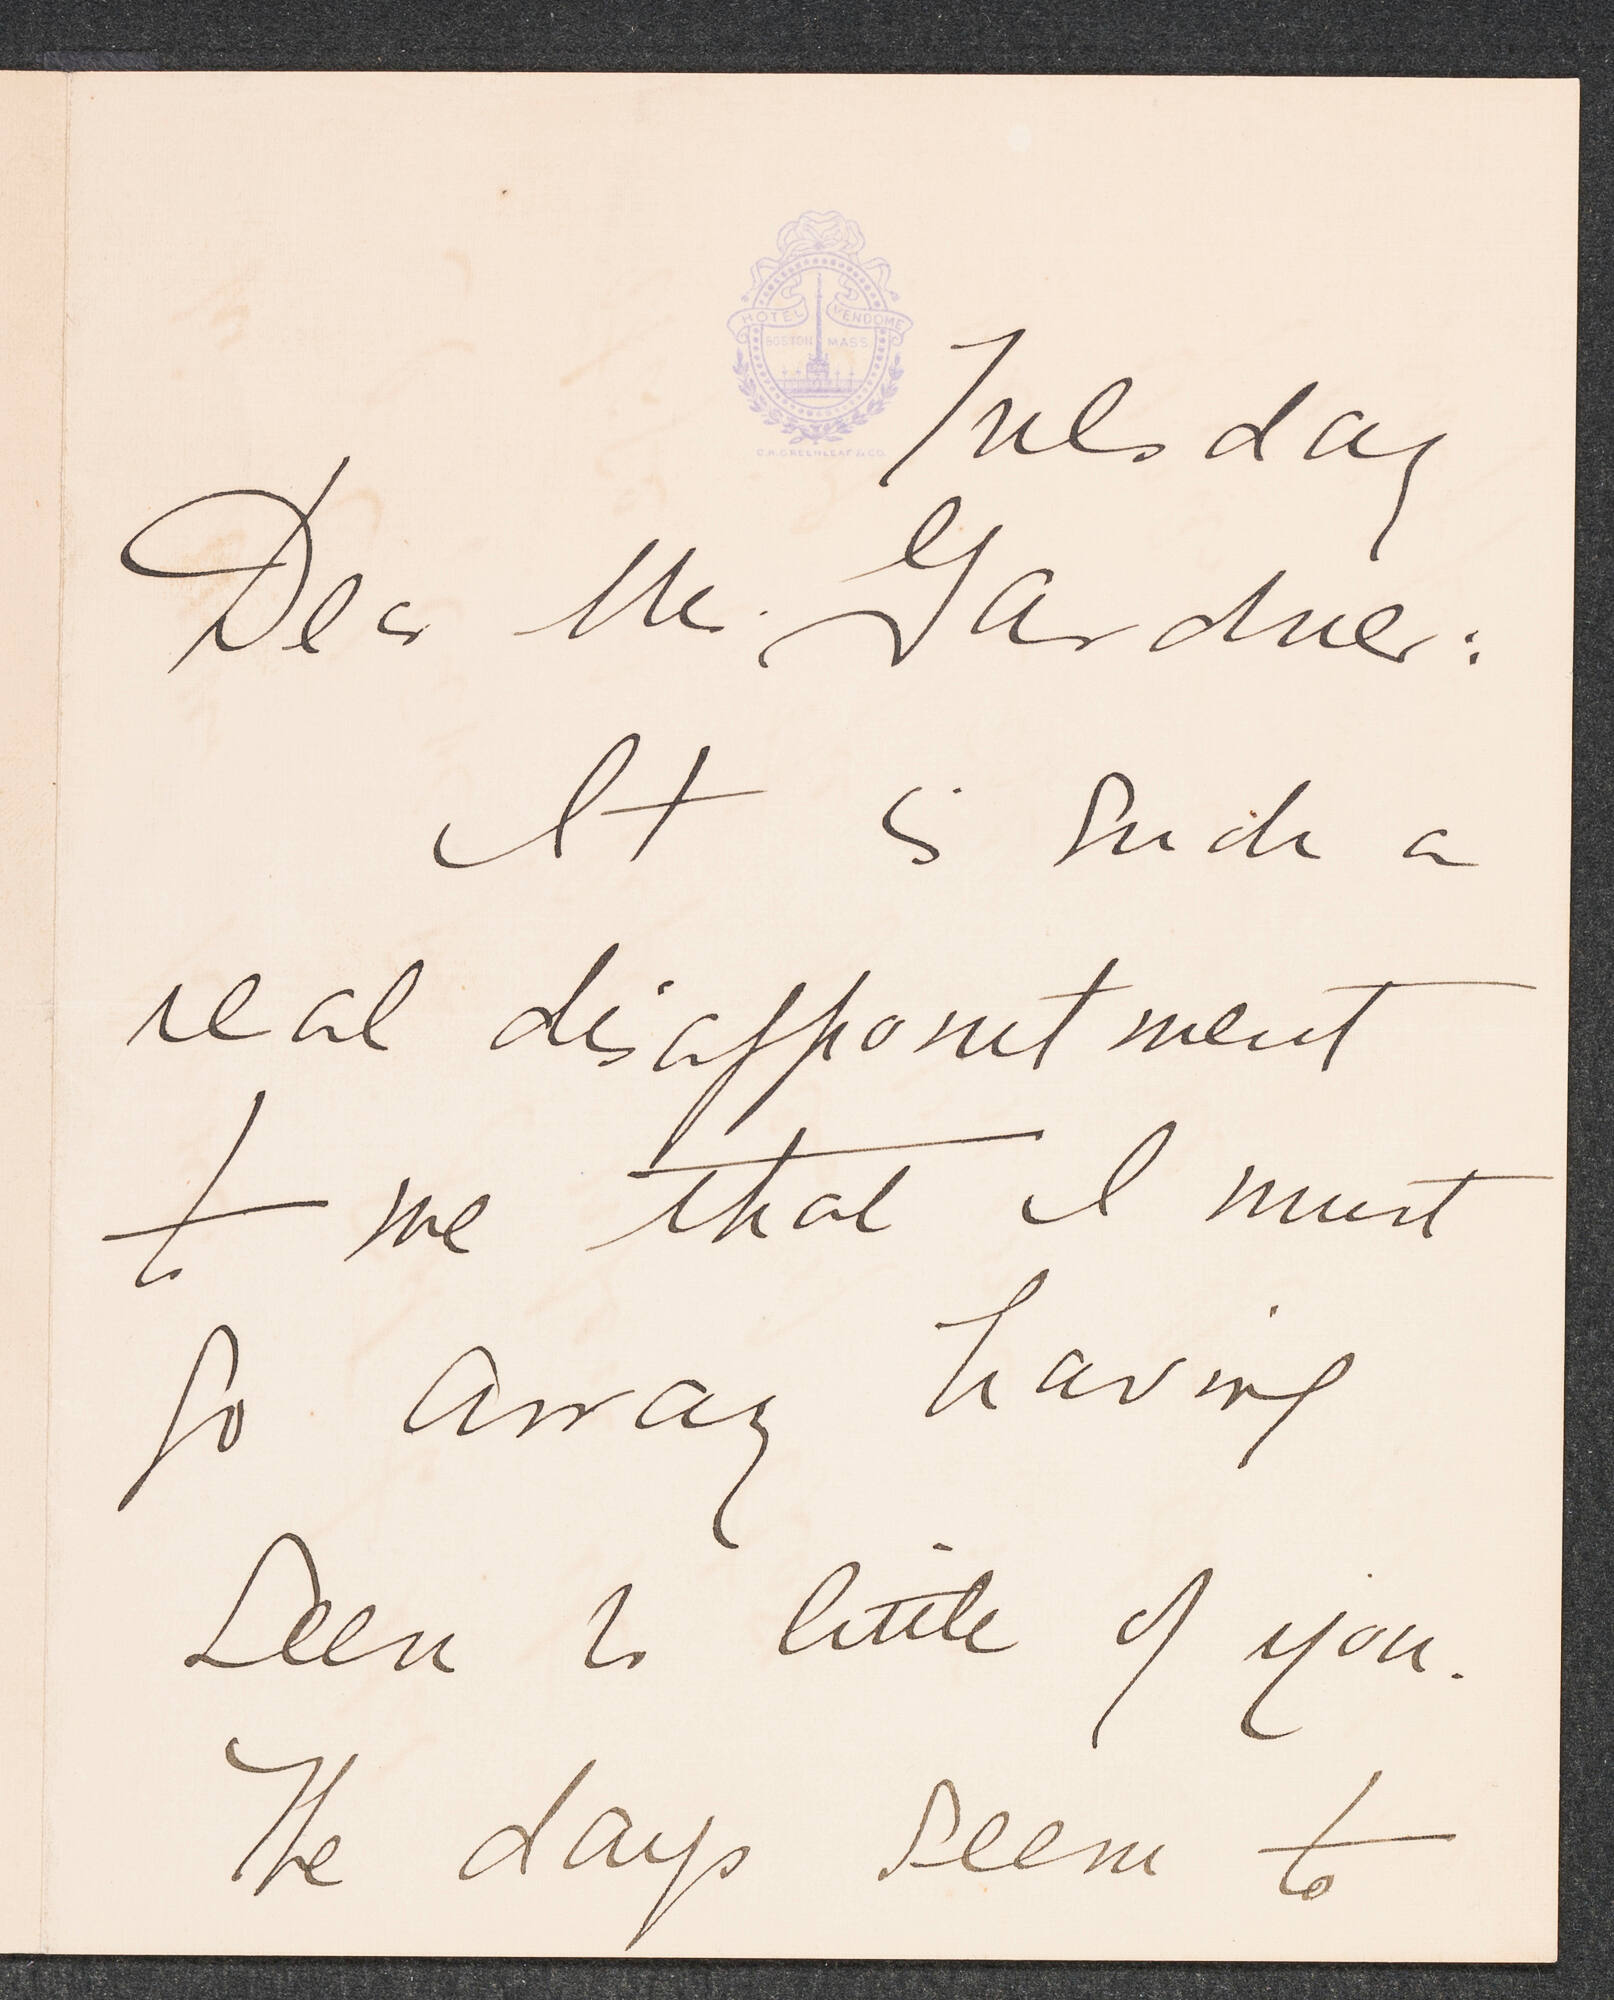 HOTEL VENDOME
BOSTON MASS
C.H. GREENLEAF & CO.
Tuesday
Dear Mr. Gardner:
It is such a
real disappointment
to me that I must
go away having
seen so little of you.
The days seem to